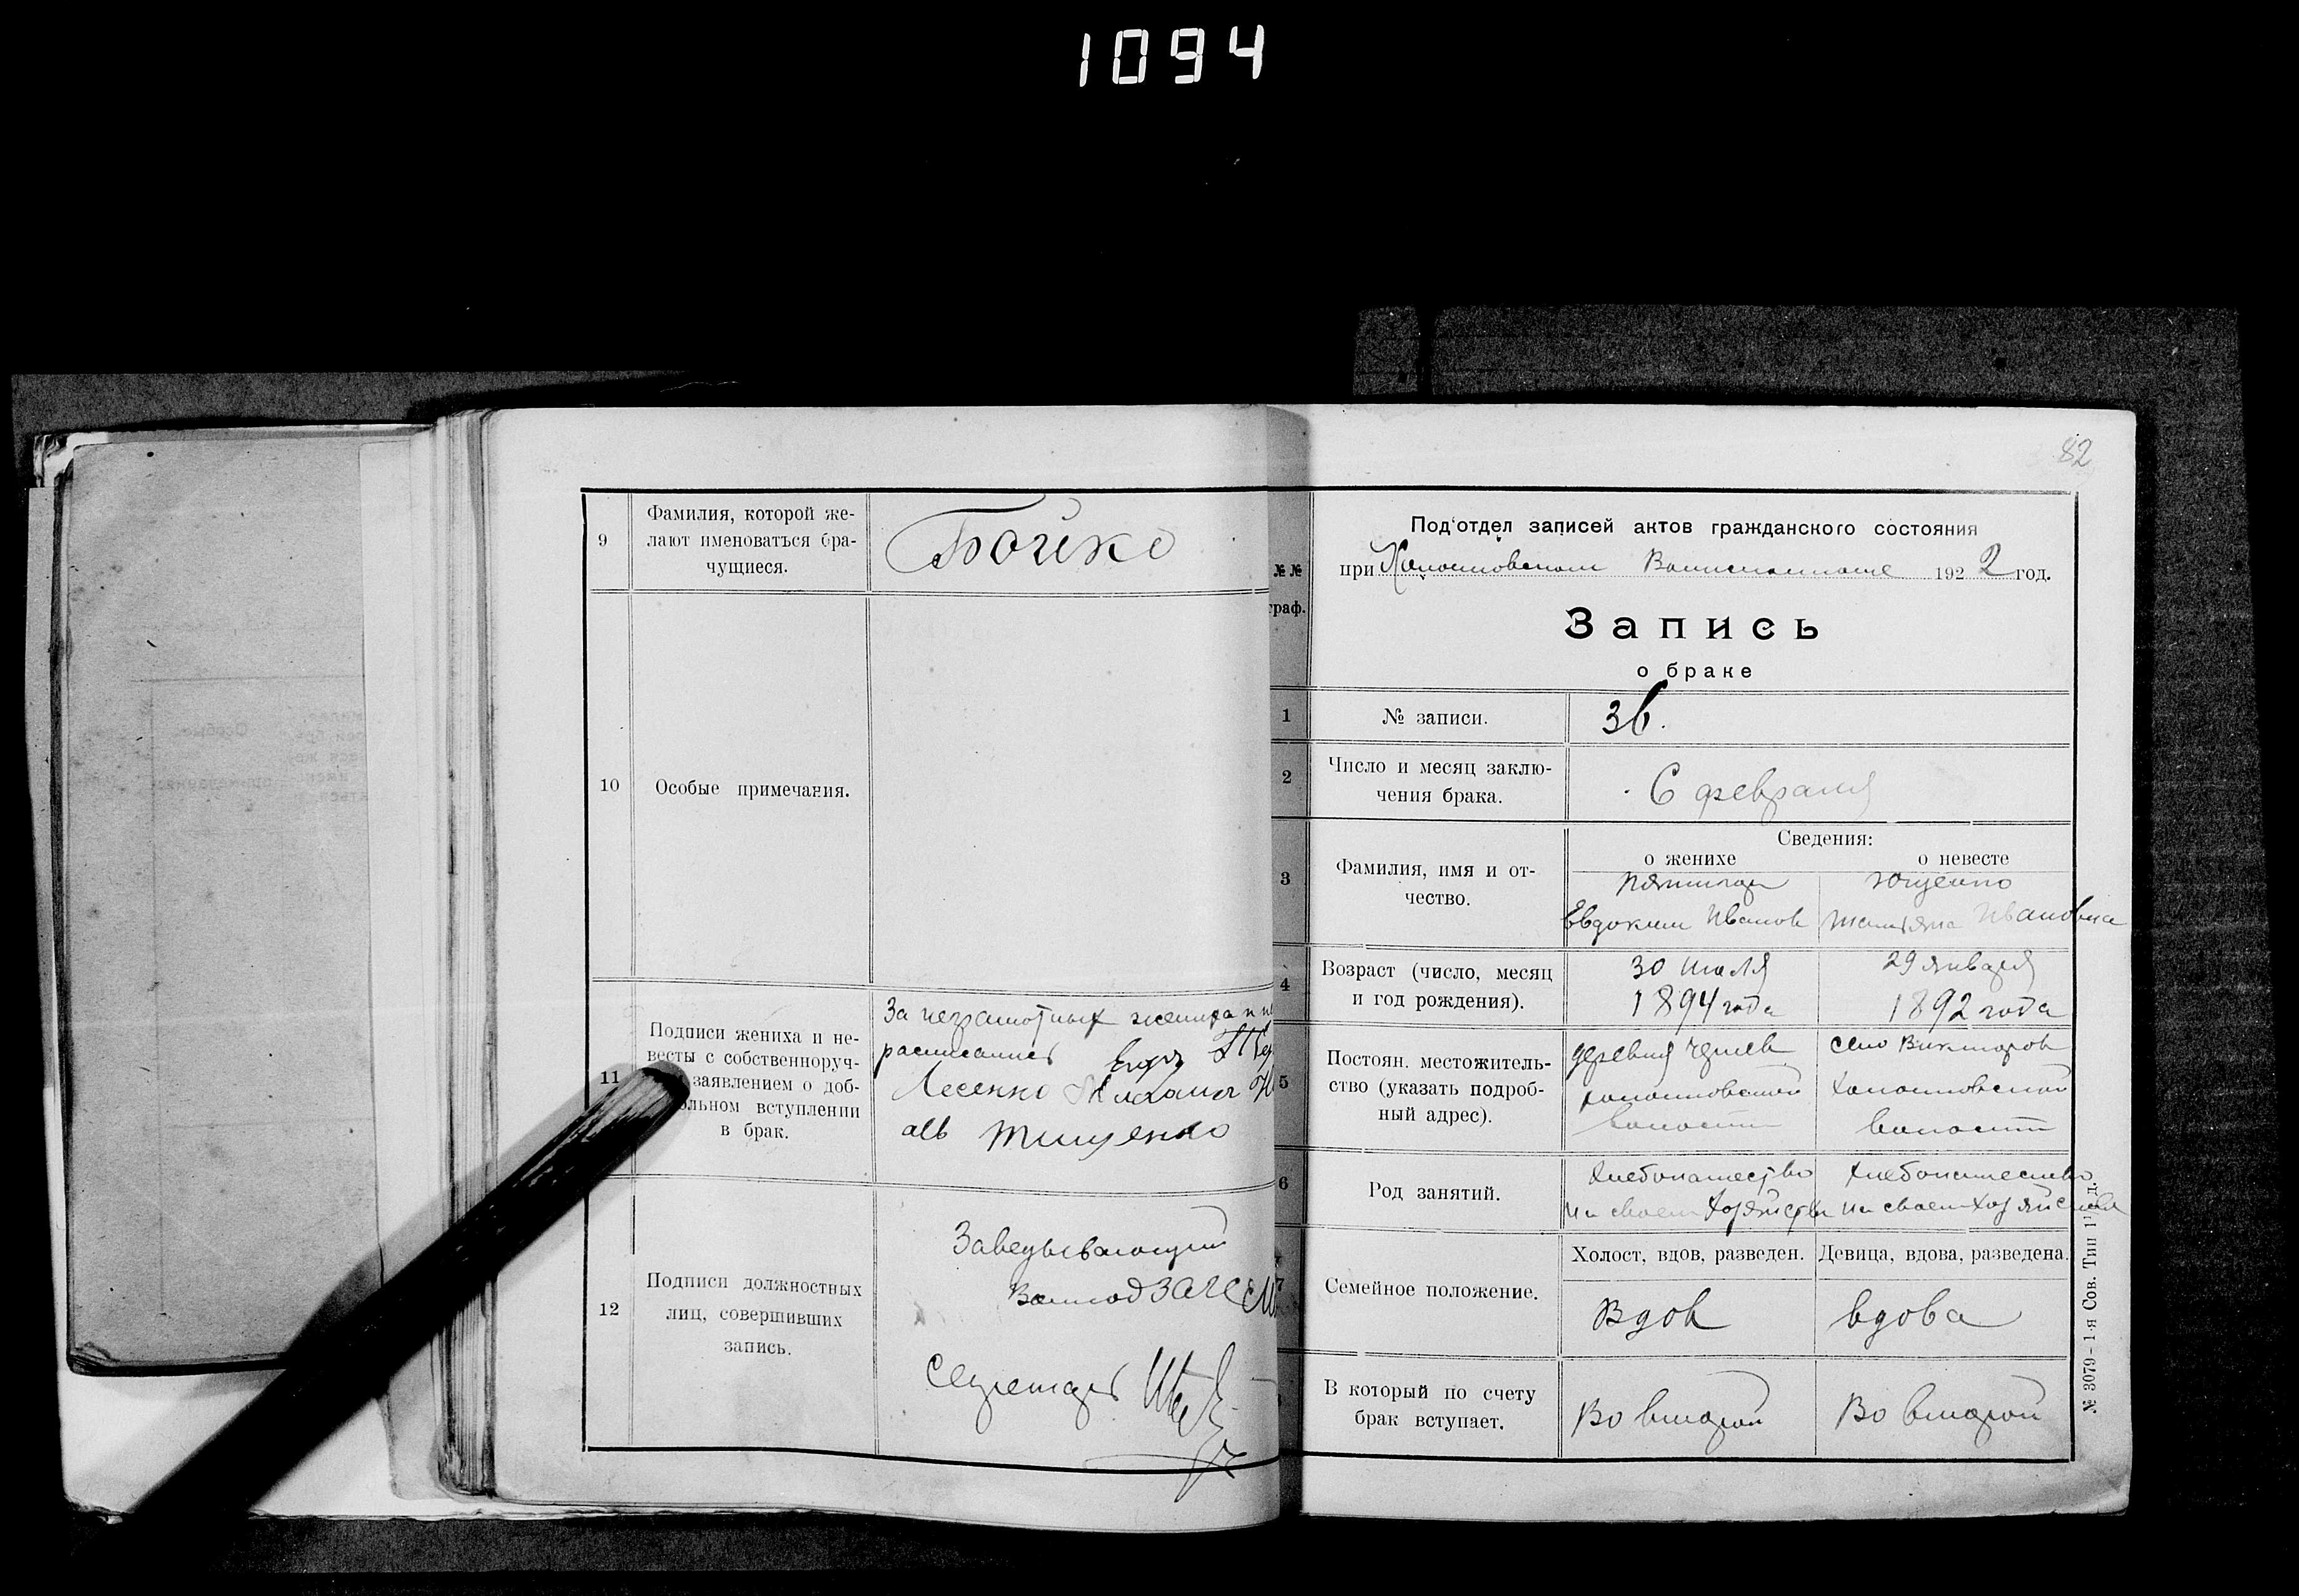 1094
9
Фамилия, которой же-
лают именоваться бра-
чущиеся.
Бойко
10
Особые примечания.
11
Подписи жениха и не-
весты с собственноруч-
заявлением о доб-
ольном вступлении
в брак.
За неграмотных жениха и не
расписались Егор
Лесенко
Тищенко
12
Подписи должностных
лиц, совершивших
запись.
Заведывающий
Секретарь
82
Под'отдел записей актов гражданского состояния
при Волисполкоме 1922 год.
Запись
о браке
№№
граф.
1
№ записи.
36.
2
Число и месяц заклю-
чения брака.
6 февраля
3
Фамилия, имя и от-
чество.
Сведения:
о женихе
о невесте
Евдоким Иванов
Ющенко
Татьяна Ивановна
4
Возраст (число, месяц
и год рождения).
30 июля
1894 года
29 января
1892 года
5
Постоян. местожитель-
ство (указать подроб-
ный адрес).
деревня
волости
село Викторов
волости
6
Род занятий.
хлебопашество
на своем хозяйстве
хлебопашество
на своем хозяйстве
7
Семейное положение.
Холост, вдов, разведен.
Девица, вдова, разведена.
Вдов
вдова
В который по счету
брак вступает.
Во второй
Во второй
№ 3079 - 1-я Сов. Тип